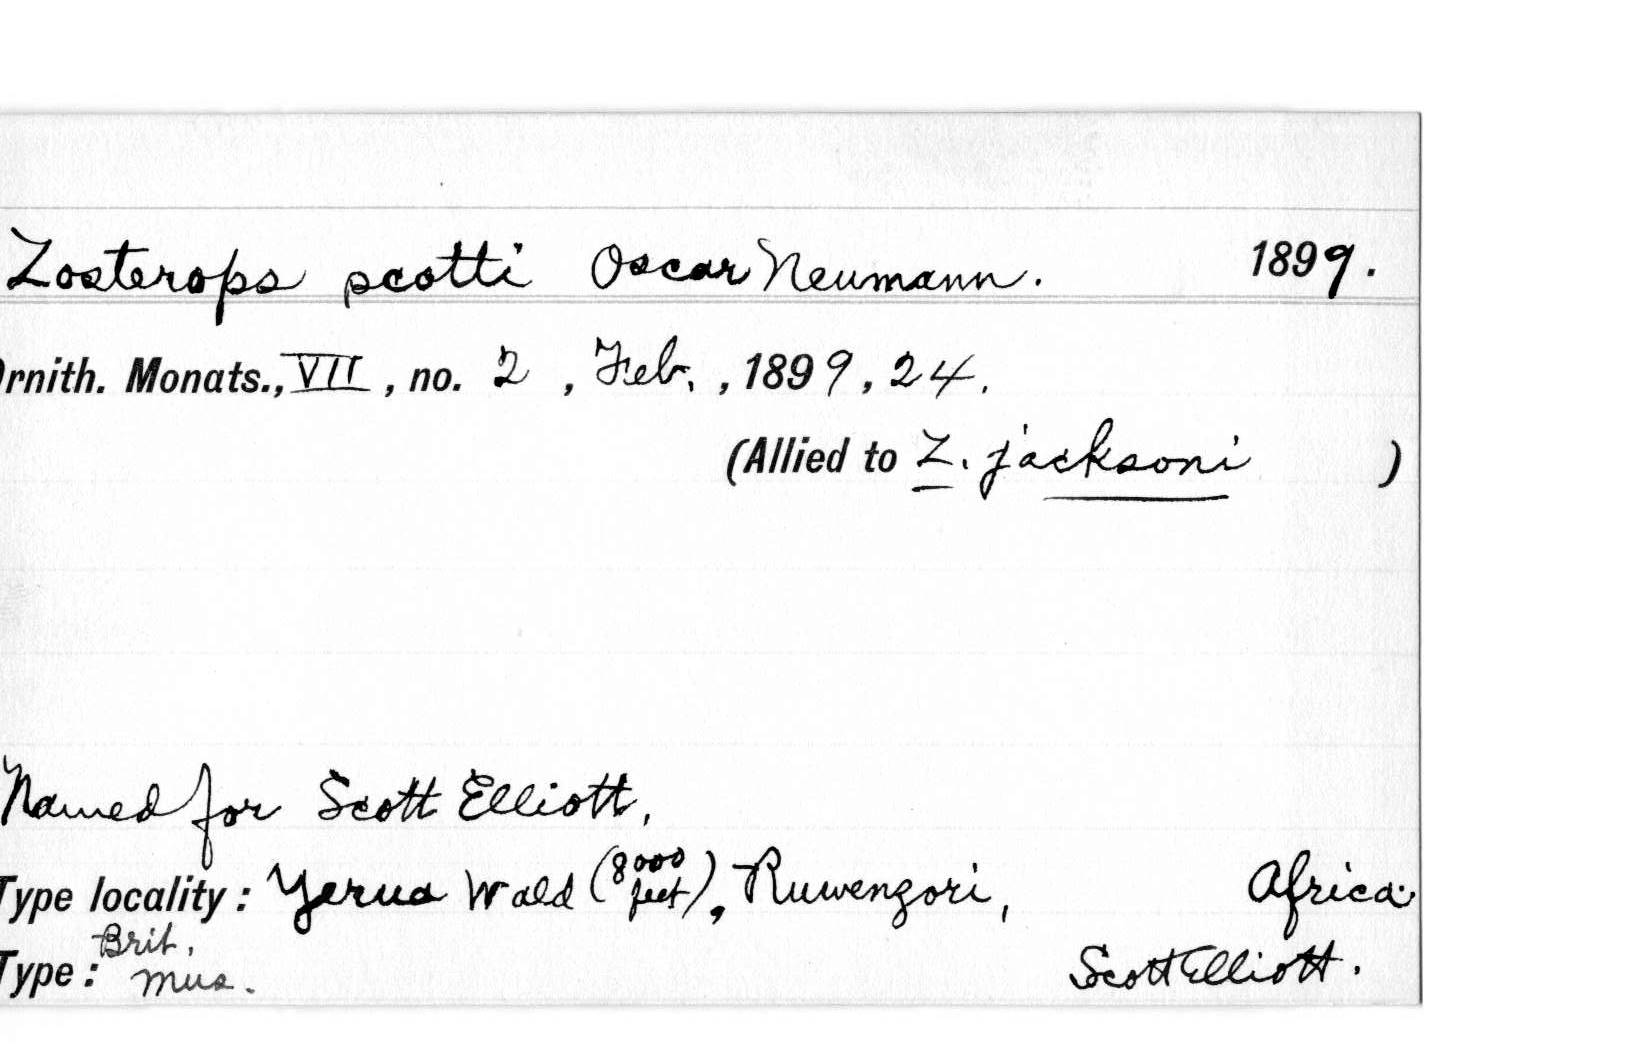 Zosterops scotti Oscar Neumann. 1899.
Ornith. Monats., VII, no. 2, Feb., 1899, 24.
(Allied to Z. jacksoni )
Named for Scott Elliott,
Type locality: Yerua Wald (8000 feet), Ruwenzori, Africa.
Type: Brit. Mus. Scott Elliott.